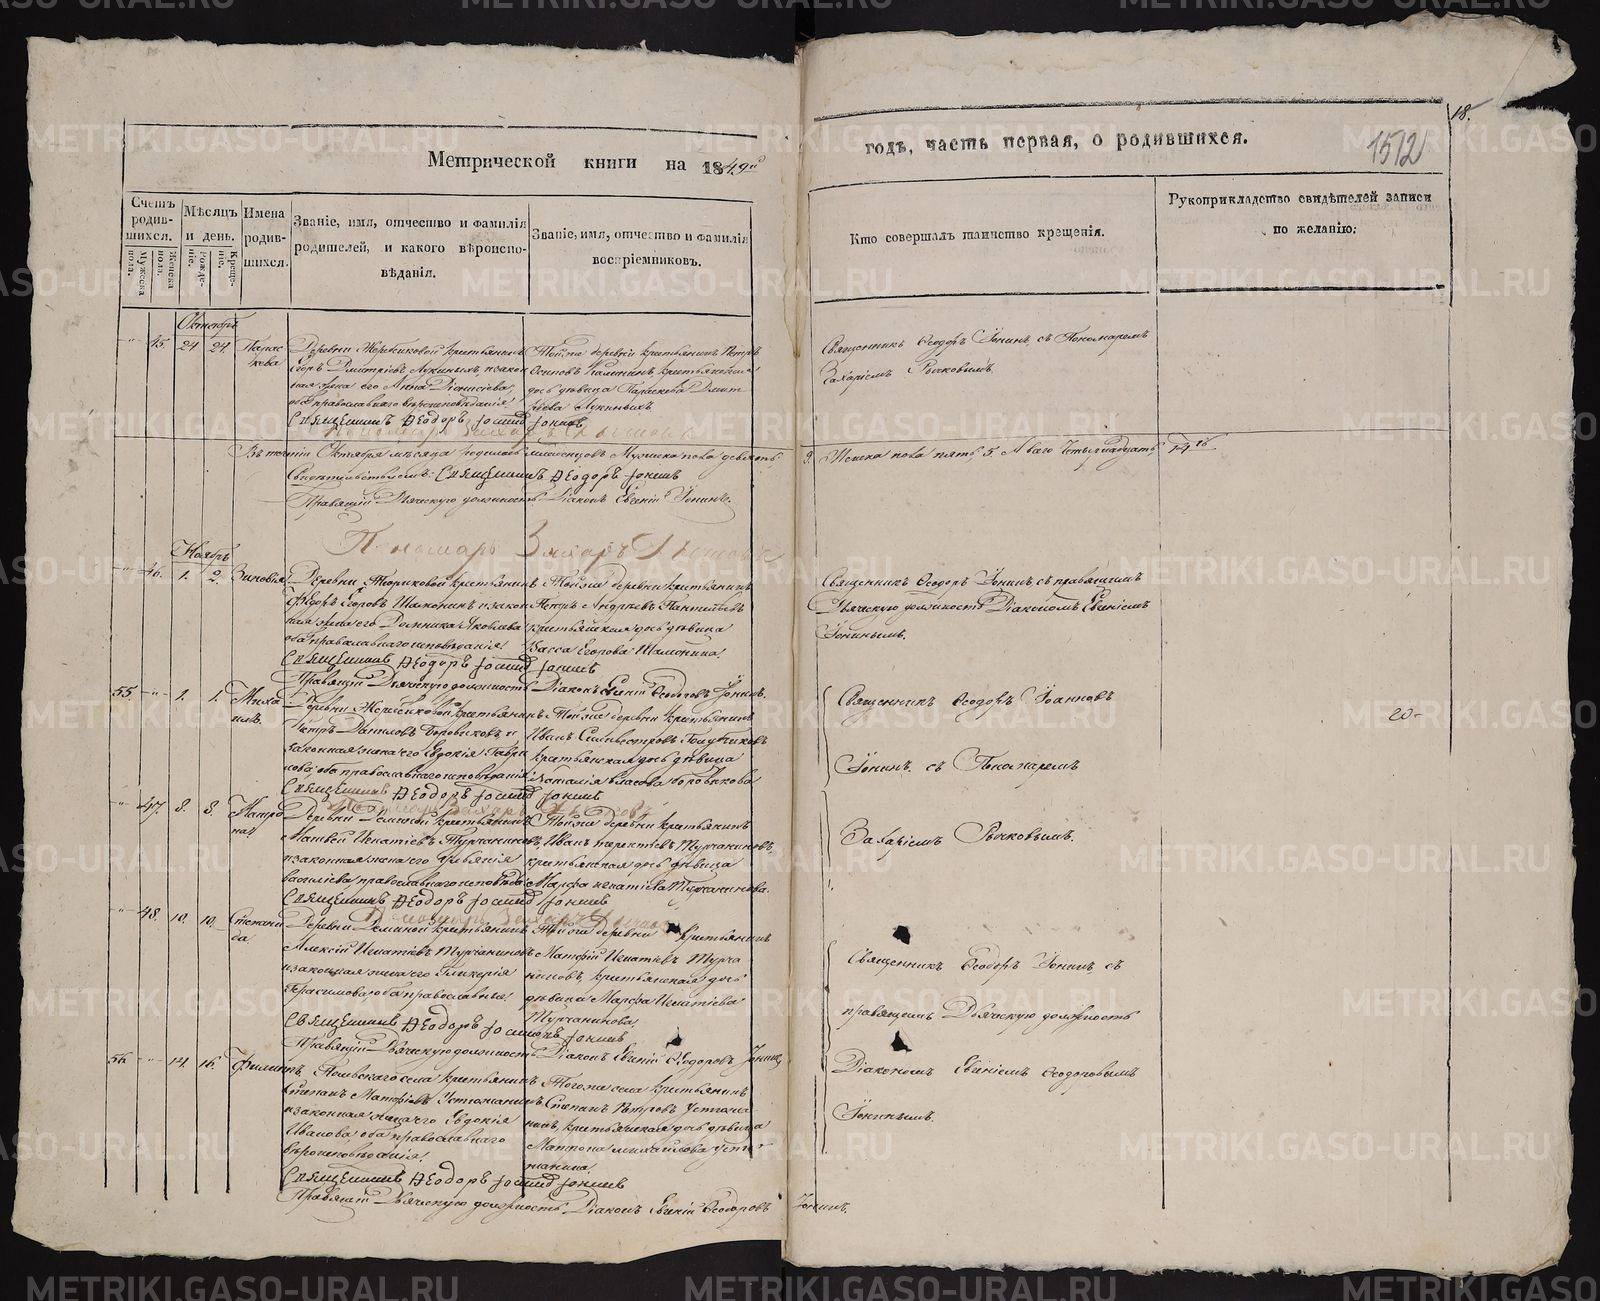 METRIKI.GASO-URAL.RU
18.
1512
Метрической книги на 1849й
годъ, часть первая, о родившихся.
Счетъ родив-шихся.
Мужеска пола.
Женска пола.
Мѣсяцъ и день.
Рожде-ніе.
Креще-ніе.
Имена родив-шихся.
Званіе, имя, отчество и фамилія
родителей, и какого вѣроиспо-
вѣданія.
Званіе, имя, отчество и фамилія
воспріемниковъ.
Кто совершалъ таинство крещенія.
Рукоприкладство свидѣтелей записи
по желанію.
Октябрь
45. 24 24. Парас
кева
Деревни крестьянинъ
Егоръ Дмитріевъ Лукиныхъ и закон
ная жена его Анна Діонисіева,
оба православнаго вѣроисповѣданія
Священникъ Ѳеодоръ Іонинъ
Тойже деревни крестьянинъ Петръ
Осиповъ крестьянская
дочь дѣвица Параскева Дмит
ріева Лукиныхъ
Священникъ Ѳеодоръ Іонинъ съ Пономаремъ
Захаріемъ Рычковымъ.
Въ теченіи Октября мѣсяца родилось младенцовъ Мужеска пола девять
9. Женска пола пять, 5. А всего Четырнадцать 14.
Священникъ Ѳеодоръ Іонинъ
Правящій Дьяческую должность Діаконъ Евгеній Іонинъ.
Пономарь Захаръ Рычковъ
Ноябрь
46. 1. 2. Зиновія
Деревни крестьянинъ
Ѳедоръ Егоровъ Шамонинъ и закон
ная жена его Домника Яковлева
оба православнаго исповѣданія
Священникъ Ѳеодоръ Іонинъ
Правящій Дьяческую должность Діаконъ Евгеній Ѳеодоровъ Іонинъ.
Тойже деревни крестьянинъ
Петръ Андреевъ Пантилѣевъ
крестьянская дочь дѣвица
Васса Егорова Шамонина.
Священникъ Ѳеодоръ Іонинъ съ правящимъ
Дьяческую должность Діакономъ Евгеніемъ
Іонинымъ.
55. 1. 1. Миха
илъ.
Деревни крестьянинъ
Петръ Даниловъ Боровиковъ и
законная жена его Евдокія Гаври
лова оба православнаго исповѣданія
Священникъ Ѳеодоръ Іонинъ
Тойже деревни крестьянинъ
Иванъ Сильвестровъ
крестьянская дочь дѣвица
Наталія Власова Боровикова
Священникъ Ѳеодоръ Іоанновъ
Іонинъ. съ Пономаремъ
Захаріемъ Рычковымъ.
20-
47. 8. 8. Матро
на
Деревни Деминой крестьянинъ
Матвѣй Игнатіевъ Турчаниновъ,
и законная жена его
Василіева православнаго исповѣда
Священникъ Ѳеодоръ Іонинъ
Тойже деревни крестьянинъ
Иванъ Терентіевъ Турчаниновъ,
крестьянская дочь дѣвица
Марфа Игнатіева Турчанинова.
48. 10. 10. Степани
да
Деревни Деминой крестьянинъ
Алексій Игнатіевъ Турчаниновъ
и законная жена его Гликерія
Герасимова оба православные.
Священникъ Ѳеодоръ Іонинъ
Правящій Дьяческую должность Діаконъ Евгеній Ѳеодоровъ Іонинъ
Тойже деревни крестьянинъ
Матфій Игнатіевъ Турча
ниновъ, крестьянская дочь
дѣвица Марфа Игнатіева
Турчанинова.
Священникъ Ѳеодоръ Іонинъ съ
правящемъ Дьяческую должность
Діакономъ Евгеніемъ Ѳеодоровымъ
Іонинымъ.
56. 14. 16. Филиппъ.
села крестьянинъ
Степанъ Матфіевъ Устюжанинъ
и законная жена его Евдокія
Иванова, оба православнаго
вѣроисповѣданія.
Священникъ Ѳеодоръ Іонинъ
Правящій Дьяческую должность Діаконъ Евгеній Ѳеодоровъ Іонинъ.
Тогоже села крестьянинъ
Степанъ Петровъ Устюжа
нинъ, крестьянская дочь дѣвица
Матрона Михайлова Устю
жанина.